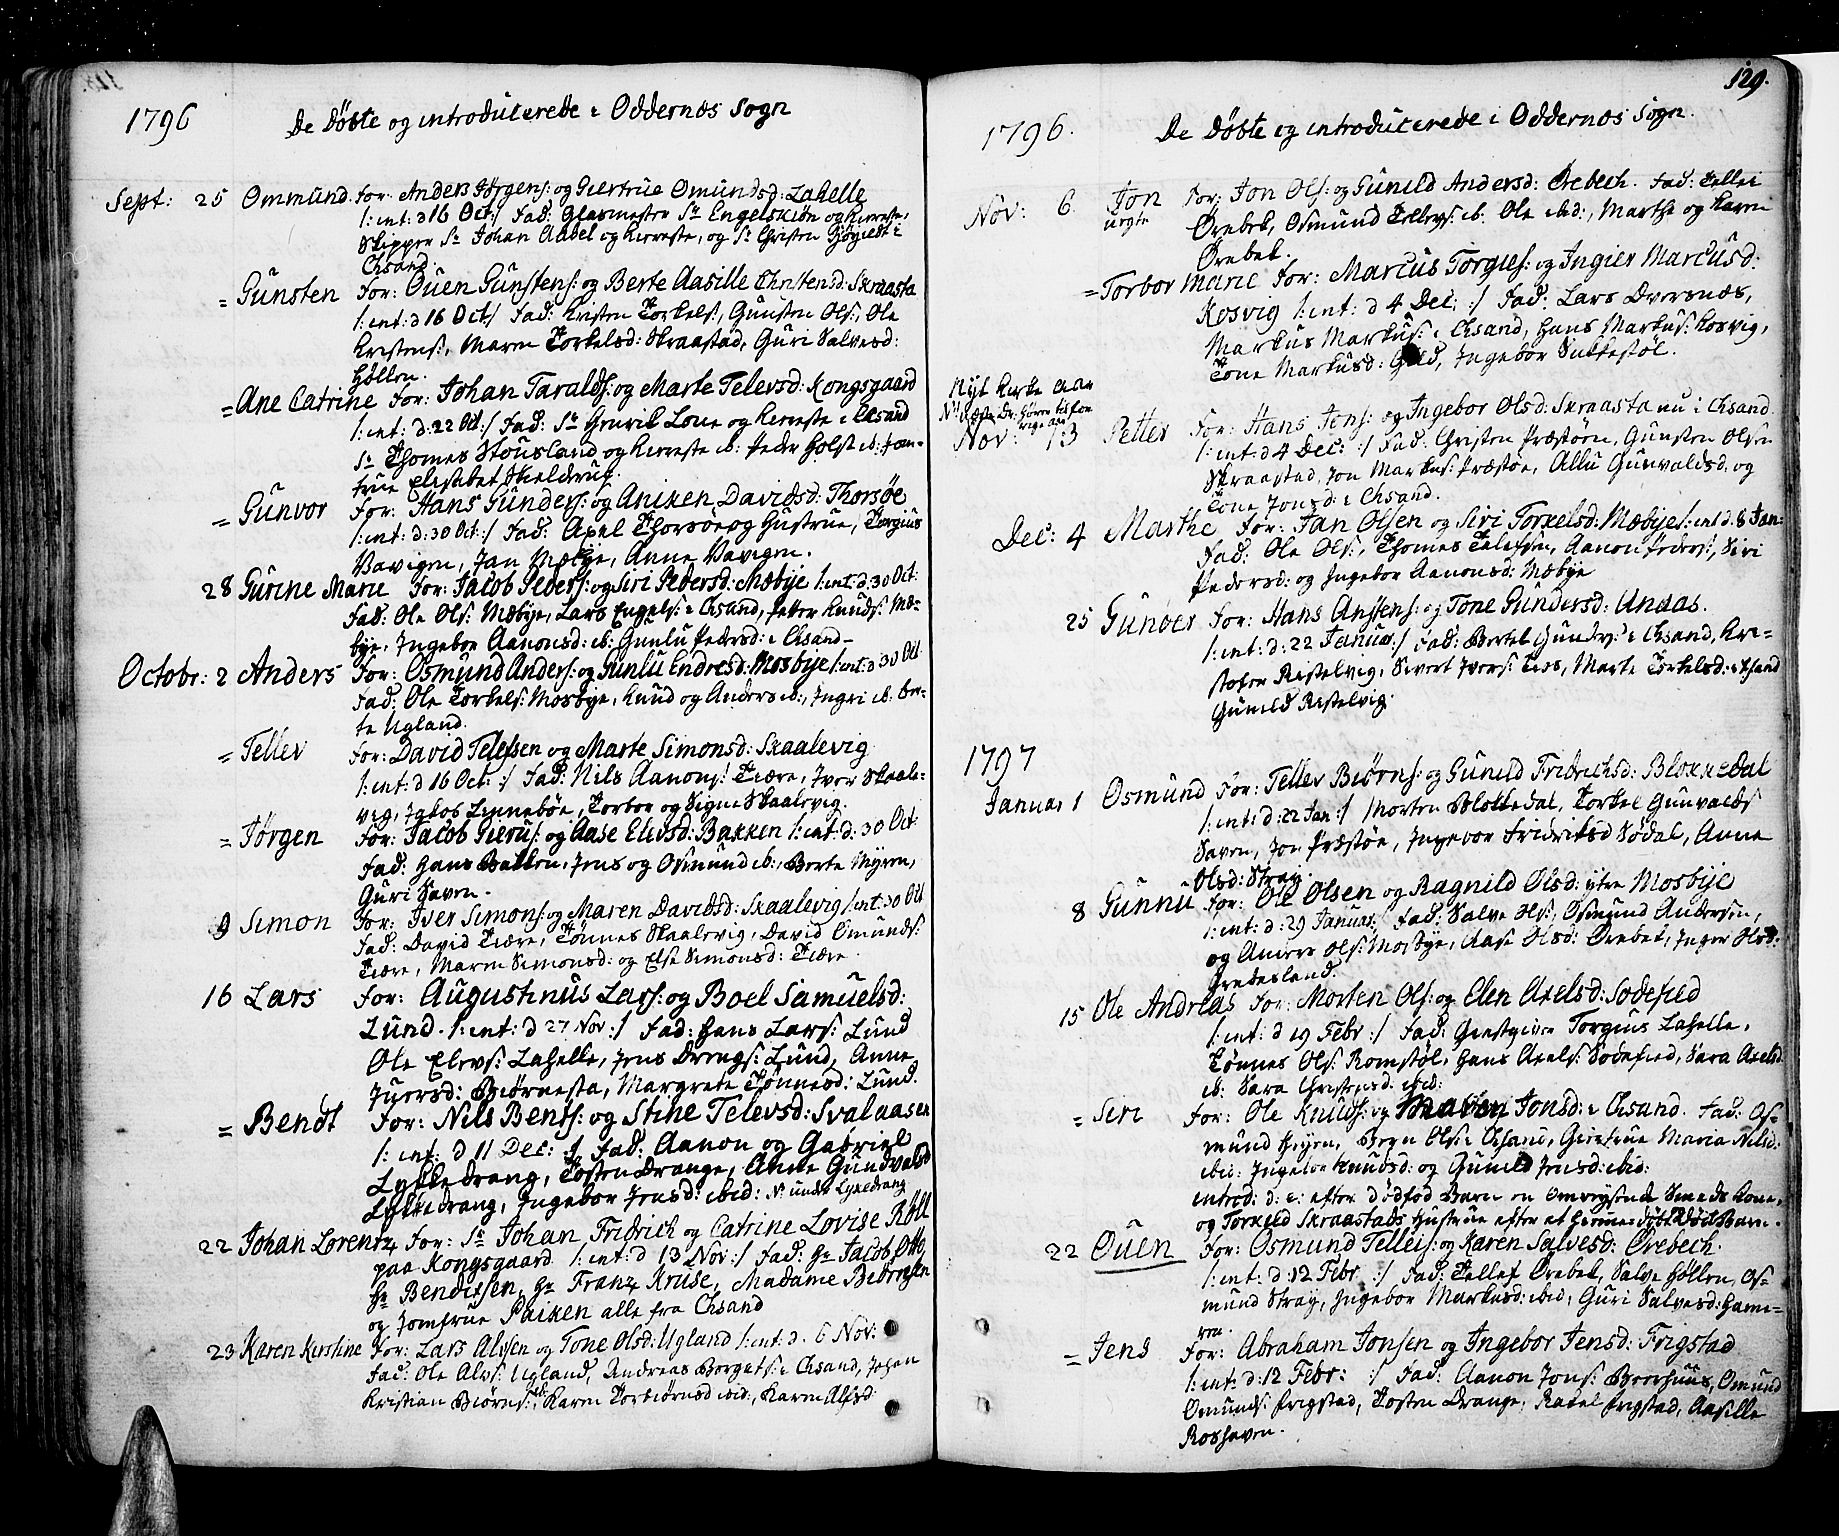 1796
De Døbte og introducerede i Oddernæs Sogn
Sept: 25 Ommund For: Anders Jørgens: og Giertrue Omundsd: Lahelle
/: int: d 16 Oct:/ Fad: Glasmester Sr Engelskiøn og kiereste,
Skipper Sr Johan Aabel og kiereste, og Sr Christen i
Chsand.
= Gunsten For: Ouen Gunstens: og Berte Aasille Christensd: Skraasta
/: int: d 16 Oct:/ Fad: Kristen Torkels:, Gunsten Ols:, Ole
Kristens:, Maren Torkelsd: Skraastad, Guri Salvesd:
Høllen.
= Ane Catrine For: Johan Taralds: og Marte Televsd: Kongsgaard
/: int: d: 22 Oct:/ Fad: Sr Henrik Lone og kiereste i Chsand
Sr Thomes Stousland og kiereste ib: Peder Holst ib: Jom-
frue Elisabet Skieldrup.
= Gunvor For: Hans Gunders: og Aniken Davidsd: Thorsøe
/: int: d: 30 Oct:/ Fad: Axel Thorsøe og Hustrue, Torgius
Vavigen, Jan Mæbye, Anne Vavigen.
28 Gurine Marie For: Jacob Peders: og Siri Pedersd: Mæbye /: int: d: 30 Oct:
Fad: Ole Ols: Mæbye, Lars Engels: i Chsand, Petter Knuds: Mæ-
bye, Ingebor Aanonsd: ib: Gunlu Pedersd: i Chsand-
Octobr: 2 Anders For: Osmund Anders: og Gunlu Endresd: Mosbye /: int: d 30 Oct
Fad: Ole Torkels: Mosbye, Knud og Anders ib:, Ingri ib: Ber-
te Ugland.
= Tellev For: David Telefsen og Marte Simonsd: Skaalevig
/: int: d 16 Oct: :/ Fad: Nils Aanons: Tiære, Iver Skaale-
vig, Jakob Linnebøe, Torbor og Signe Skaalevig.
= Jørgen For: Jacob Gieru/: og Aase Elevsd: Bakken /: int: d: 30 Oct:
Fad: Hans Bakken, Jens og Osmund ib:, Berte Myren,
Guri Haven.
9 Simon For: Iver Simons: og Maren Davidsd: Skaalevig /: int: 30 Oct
Fad: David Tiære, Tønnes Skaalevig, David Omunds:
Tiære, Maren Simonsd: og Else Simonsd: Tiære.
16 Lars For: Augustinus Lars: og Boel Samuelsd:
Lund. /: int: d 27 Nov:/ Fad: Hans Lars: Lund
Ole Elevs: Lahelle, Jens Drengs: Lund, Anne
Juersd: Biørnesta, Margrete Tønnesd: Lund.
= Bendt For: Nils Bents: og Stine Televsd: Svalaasen
/: int: d 11 Dec: / Fad: Aanon og Gabriel
Lykkedrang, Tosten Drange, Anne Gundvalsd
Lykkedrang, Ingebor Jensd: ibid: N: under Lykedrang
22 Johan Lorentz For: Sr Johan Fridrich og Catrine Lovise Röll
paa Kongsgaard /: int: d 13 Nov:/ Fad: Hr Jacob Otto,
Hr Bendixen, Hr Franz Kruse, Madame Biörnsen
og Jomfrue Paiken alle fra Chsand
23 Karen Kirstine For: Lars Alvsen og Tone Olsd: Ugland /: int: d. 6 Nov:
Fad: Ole Alvs: Ugland, Andreas Borgets: i Chsand, Johan
Kristian Biørns: ib: Karen Torbiørnsd ibid:, Karen Alvsd
129.
1796.
De Døbte og introducerede i Oddernæs Sogn.
Nov: 6 Jon For: Jon Ols: og Gunild Andersd: Ørebech. Fad: Tellei
uegte Ørebek, Osmund Tellevs: ib: Ole ibid:, Marthe og Karen
Ørebek.
= Torbor Marie For: Marcus Torgies: og Ingier Marcusd:
Kosvig /: int: d 4 Dec: :/ Fad: Lars Dversnæs,
Markus Markus: i Chsand, Hans Markus: Kosvig,
Tone Markusd: Gill, Ingebor Sukkestøl.
Nyt Kirke aar
Nov: 13 Petter For: Hans Jens: og Ingebor Olsd: Skraasta nu i Chsand
/: int: d 4 Dec: :/ Fad: Christen Præstøen, Gunsten Olsen
Skraastad, Jon Markus: Præstøe, Allu Gunvaldsd, og
Tone Jonsd: i Chsand.
Dec: 4 Marthe For: Jan Olsen og Siri Torkelsd: Mæbye /: int d: 8 Jan:
Fad: Ole Ols:, Thomes Telefsen, Aanon Peders:, Siri
Pedersd: og Ingebor Aanonsd: Mæbye
25 Gunder For: Hans Anssens: og Tone Gundersd: Undaas.
/: int: d: 22 Januar:/ Fad: Bertel Gunders: i Chsand, Kri-
stofer Kistelvig, Sivert Ivers: Eos, Marte Torkelsd: i Chsand
Gunild Kistelvig.
1797
Januar 1 Osmund For: Tellev Biørns: og Gunild Fridrichsd: Blokkedal
/: int: d: 22 Jan:/ Morten Blokkedal, Torkel Gunvalds
Haven, Jon Præstøe, Ingebor Fridriksd Södal, Anne
Olsd: Stray.
8 Gunnu For: Ole Olsen og Ragnild Olsd: ytre Mosbye
/: int: d: 29 Januar:/ Fad: Salve Ols:, Osmund Andersen,
og Anders Ols: Mosbye, Aase Olsd: Ørebek, Inger Olsd:
Grebesland.
15 Ole Andreas For: Morten Ols: og Elen Axelsd: Sodefied
/: int: d 19 Febr :/ Fad: Giestgiver Torgius Lahelle,
Tønnes Ols: Romstøl, Hans Axels: Sodefied, Sara Axelsd
ib: Sara Christensd: ibid:
= Siri For: Ole Knuds: og Maren Jonsd: i Chsand. Fad: Os-
mund Heyren, Ols: i Chsand, Giertrue Maria Nilsd:
ibid: Ingebor Knudsd: og Gunild Jensd: ibid:
introd: d: e: efter dødfød Barn en omreysende Smeds Kone,
og Torkeld Skraastads Hustrue efter et hiemmedøbt død Barn.
22 Ouen For: Osmund Telleis: og Karen Salvesd: Ørebech.
/: int: d: 12 Febr :/ Fad: Tellef Ørebek, Salve Høllen, Os-
mund Stray, Ingebor Markusd: ibid, Guri Salvesd: Hame-
ren.
= Jens For: Abraham Jonsen og Ingebor Jensd: Frigstad
/: int: d: 12 Febr: :/ Fad: Aanon Jons: Boerhuus, Omund
Omunds: Frigstad, Tosten Drange, Rakel Frigstad, Aasille
Roshaven.